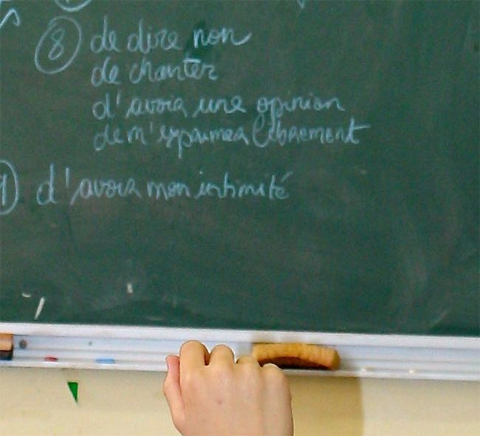 8 de dire non
de chanter
d'avoir une opinion
de m'exprimer librement
d'avoir mon intimité